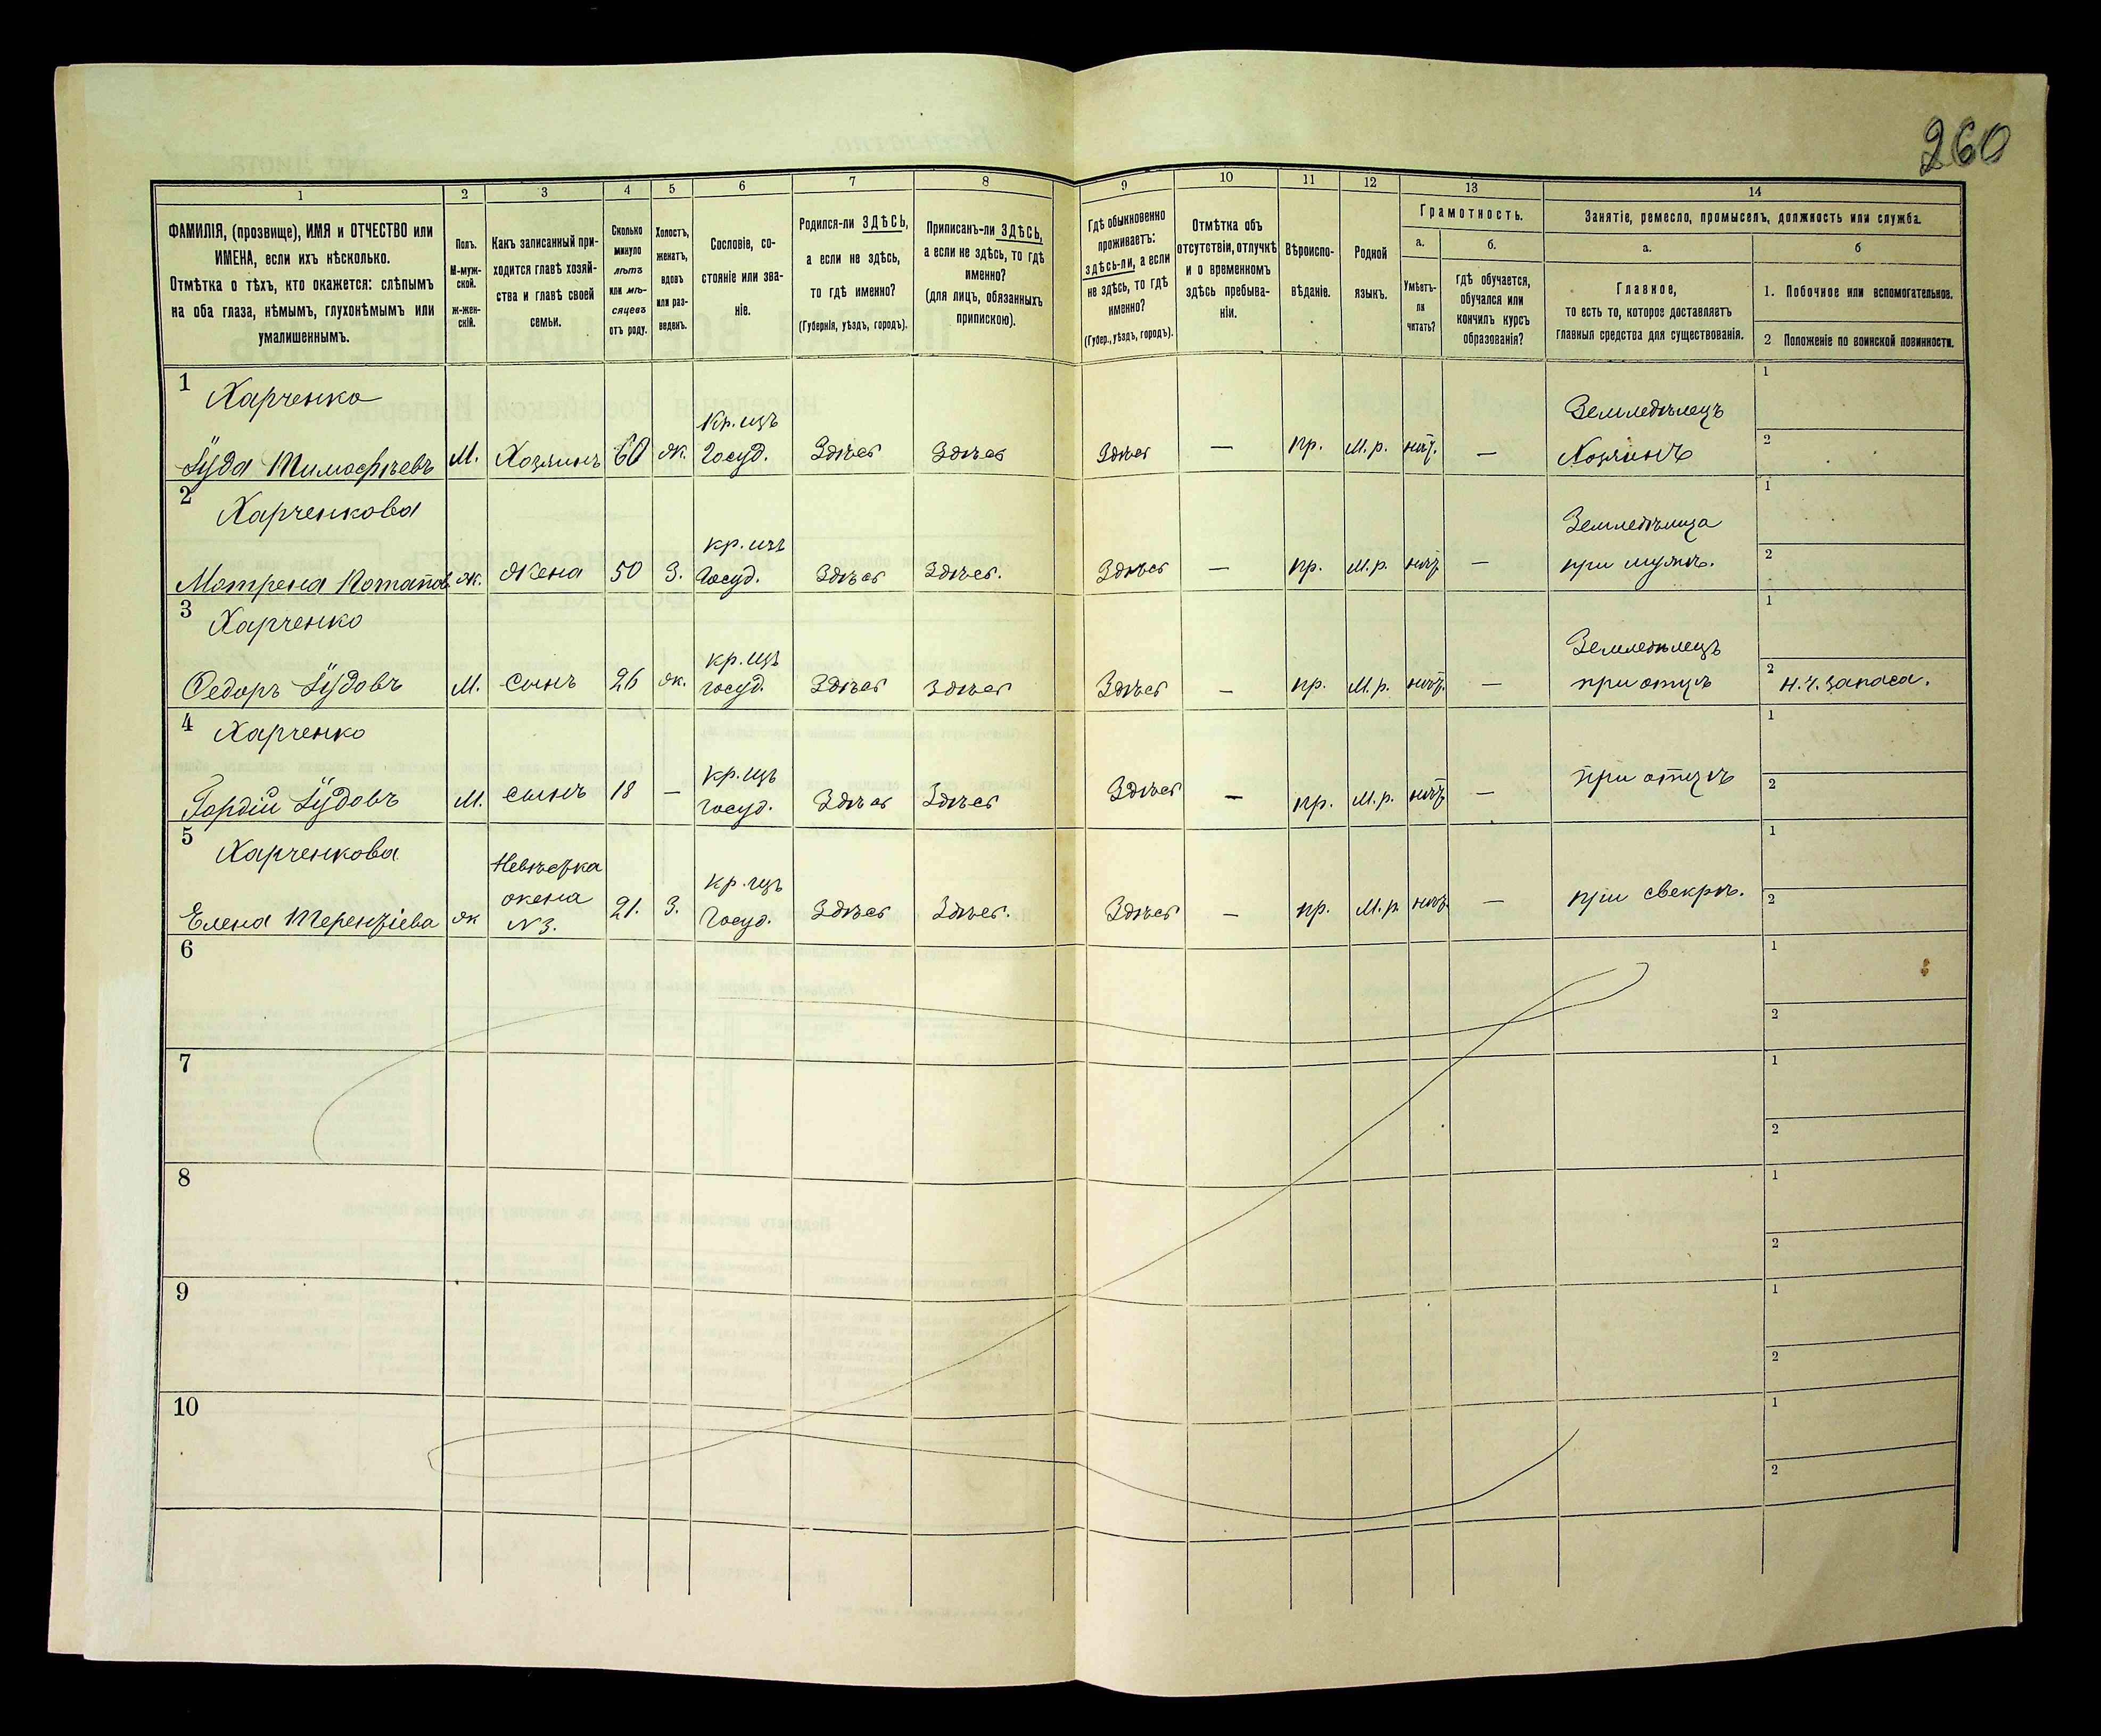 260
1
2
3
4
5
6
7
8
9
10
11
12
13
14
ФАМИЛІЯ, (прозвище), ИМЯ и ОТЧЕСТВО или
ИМЕНА, если ихъ нѣсколько.
Отмѣтка о тѣхъ, кто окажется: слѣпымъ
на оба глаза, нѣмымъ, глухонѣмымъ или
умалишеннымъ.
Полъ.
М-муж-
ской.
ж-жен-
скій.
Какъ записанный при-
ходится главѣ хозяй-
ства и главѣ своей
семьи.
Сколько
минуло
лѣтъ
или мѣ-
сяцевъ
отъ роду.
Холостъ,
женатъ,
вдовъ
или раз-
веденъ.
Сословіе, со-
стояніе или зва-
ніе.
Родился-ли ЗДѢСЬ,
а если не здѣсь,
то гдѣ именно?
(Губернія, уѣздъ, городъ).
Приписанъ-ли ЗДѢСЬ,
а если не здѣсь, то гдѣ
именно?
(для лицъ, обязанныхъ
припискою).
Гдѣ обыкновенно
проживаетъ:
здѣсь-ли, а если
не здѣсь, то гдѣ
именно?
(Губер., уѣздъ, городъ).
Отмѣтка объ
отсутствіи, отлучкѣ
и о временномъ
здѣсь пребыва-
ніи.
Вѣроиспо-
вѣданіе.
Родной
языкъ.
Грамотность.
а.
Умѣетъ-
ли
читать?
б.
гдѣ обучается,
обучался или
кончилъ курсъ
образованія?
Занятіе, ремесло, промыселъ, должность или служба.
а.
Главное,
то есть то, которое доставляетъ
главныя средства для существованія.
б
1. Побочное или вспомогательное.
2 Положеніе по воинской повинности.
1 Харченко
Іуда Тимофѣевъ М. Хозяинъ 60 ж. Кр. изъ Госуд. Здѣсь Здѣсь Здѣсь — пр. М. р. нѣт. — Земледѣлецъ Хозяинъ 1 2
2 Харченкова
Мотрена Потапов ж. жена 50 З. кр. изъ Госуд. Здѣсь Здѣсь. Здѣсь — пр. М. р. нѣт — Земледѣлица при мужѣ. 1 2
3 Харченко
Федоръ Іудовъ М. сынъ 26 ж. кр. изъ госуд. Здѣсь Здѣсь Здѣсь — пр. М. р. нѣт. — Земледѣлецъ при отцѣ 1 2 н. ч. запаса.
4 Харченко
Гордій Іудовъ М. сынъ 18 — кр. изъ госуд. Здѣсь Здѣсь Здѣсь — пр. М. р. нѣт — при отцѣ 1 2
5 Харченкова
Елена Терентіева ж Невѣстка жена N 3. 21. З. кр. изъ Госуд. Здѣсь Здѣсь. Здѣсь — пр. М. р. нѣт. — при свекрѣ. 1 2
6 1 2
7 1 2
8 1 2
9 1 2
10 1 2